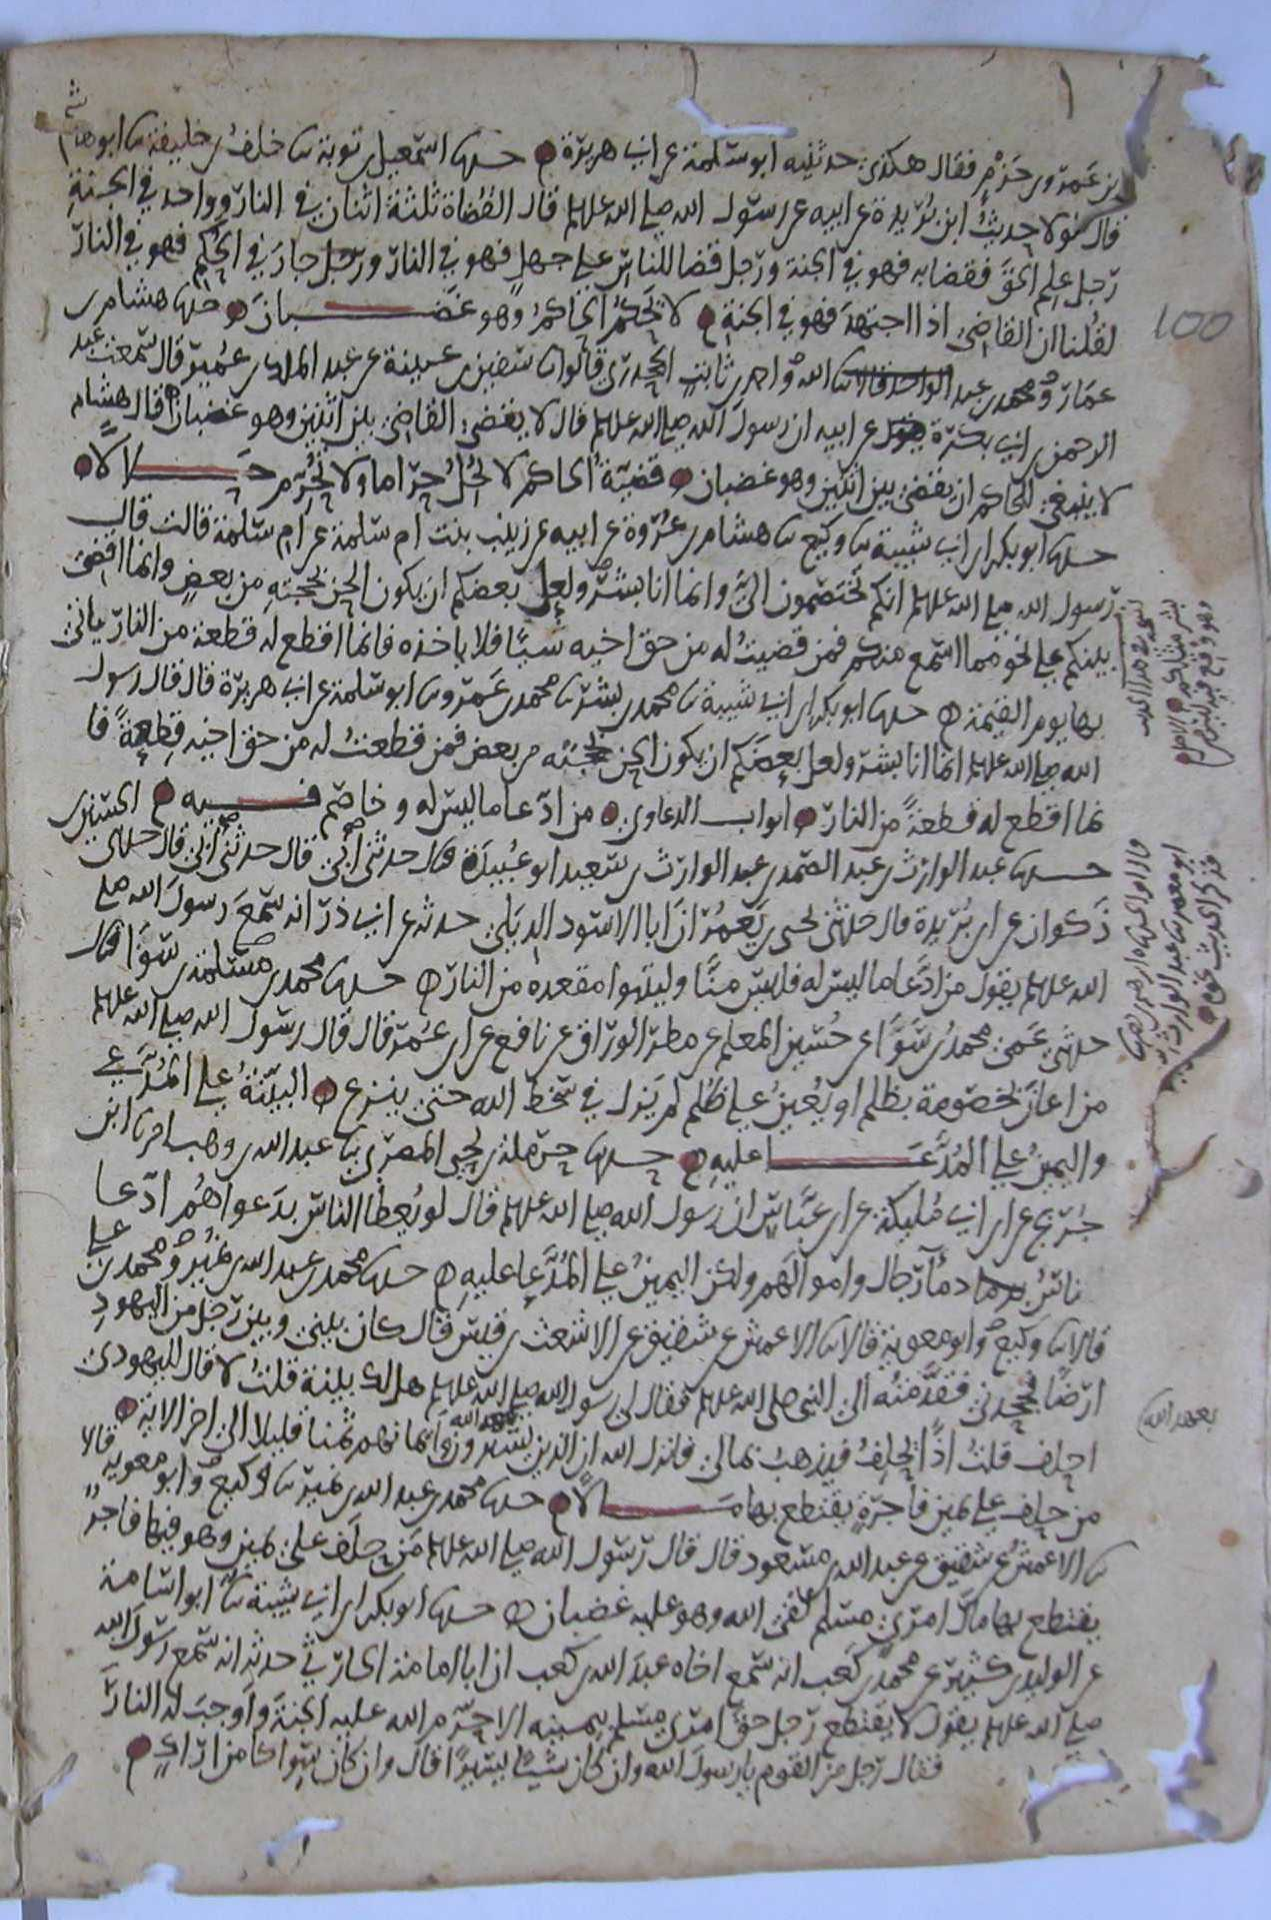 ابن عمرو بن حزم فقال هكذى حدثنيه ابو سلمة عن ابى هريرة حدثنا اسمعيل بن توبة ثنا خلف بن خليفة ثنا ابو هاشم
قال لولا حديث ابن بريدة عن ابيه عن رسول الله صلى الله عليه وسلم قال القضاة ثلثة اثنان في النار وواحد في الجنة
رجل علم الحق فقضا به فهو في الجنة ورجل قضا للناس على جهل فهو في النار ورجل جار في الحكم فهو في النار
لقلنا ان القاضى اذا اجتهد فهو في الجنة لا يحكم الحاكم وهو غضبان حدثنا هشام بن
عمار ومحمد بن عبد الله واحمد بن ثابت الجحدرى قالوا ثنا سفين بن عيينة عن عبد الملك بن عمير قال سمعت عبد
الرحمن بن ابى بكرة عن ابيه ان رسول الله صلى الله عليه وسلم قال لا يقضى القاضى بين اثنين وهو غضبان قال هشام
لا ينبغى للحاكم ان يقضى بين اثنين وهو غضبان قضية الحاكم لا تحل حراما ولا تحرم حلالا
حدثنا ابو بكر بن ابى شيبة ثنا وكيع ثنا هشام بن عروة عن ابيه عن زينب بنت ام سلمة عن ام سلمة قالت قال
رسول الله صلى الله عليه وسلم انكم تختصمون الى وانما انا بشر ولعل بعضكم ان يكون الحن بحجته من بعض وانما اقضى
بينكم على نحو مما اسمع منكم فمن قضيت له من حق اخيه شيئا فلا ياخذه فانما اقطع له قطعة من النار ياتى
بها يوم القيمة حدثنا ابو بكر بن ابى شيبة ثنا محمد بن بشر ثنا محمد بن عمرو ثنا ابو سلمة عن ابى هريرة قال قال رسول
الله صلى الله عليه وسلم انما انا بشر ولعل بعضكم ان يكون الحن بحجته من بعض فمن قطعت له من حق اخيه قطعة فا
نما اقطع له قطعة من النار ابواب الدعاوى من ادعا ما ليس له وخاصم فيه
حدثنا عبد الوارث بن عبد الصمد بن عبد الوارث بن سعيد ابو عبيدة قال حدثنى ابى قال حدثنى ابى قال حدثنى الحسين بن
ذكوان عن ابن بريدة قال حدثنى يحيى بن يعمر ان ابا الاسود الديلى حدثه عن ابى ذر انه سمع رسول الله صلى
الله عليه وسلم يقول من ادعا ما ليس له فليس منا وليتبوا مقعده من النار حدثنا محمد بن ثعلبة بن سوا قال
حدثنى عمى محمد بن سوا عن حسين المعلم عن مطر الوراق عن نافع عن ابن عمر قال قال رسول الله صلى الله عليه وسلم
من اعان بخصومة بظلم او يعين على ظلم لم يزل في سخط الله حتى ينزع البينة على المدعى
واليمين على المدعا عليه حدثنا حرملة بن يحيى المصرى ثنا عبد الله بن وهب اخبرنا ابن
جريج عن ابن ابى مليكة عن ابن عباس ان رسول الله صلى الله عليه وسلم قال لو يعطا الناس بدعواهم ادعا
ناس دما رجال واموالهم ولكن اليمين على المدعا عليه حدثنا محمد بن عبد الله بن نمير وعلى بن محمد
قالا ثنا وكيع وابو معوية قالا ثنا الاعمش عن شقيق عن الاشعث بن قيس قال كان بينى وبين رجل من اليهود
ارضا فجحدنى فقدمته الى النبى صلى الله عليه وسلم فقال لى رسول الله صلى الله عليه وسلم هل لك بينة قلت لا قال لليهودى
احلف قلت اذا يحلف فيذهب بمالى فانزل الله ان الذين يشترون بعهد الله وايمانهم ثمنا قليلا الى اخر الاية
من حلف على يمين فاجرة يقتطع بها مالا حدثنا محمد بن عبد الله بن نمير ثنا وكيع وابو معوية قالا
ثنا الاعمش عن شقيق عن عبد الله بن مسعود قال قال رسول الله صلى الله عليه وسلم من حلف على يمين وهو فيها فاجر
يقتطع بها مال امرى مسلم لقى الله وهو عليه غضبان حدثنا ابو بكر بن ابى شيبة ثنا ابو اسامة
عن الوليد بن كثير عن محمد بن كعب انه سمع اخاه عبد الله بن كعب ان ابا امامة الحارثى حدثه انه سمع رسول الله
صلى الله عليه وسلم يقول لا يقتطع رجل حق امرى مسلم بيمينه الا حرم الله عليه الجنة واوجب له النار
فقال رجل من القوم يا رسول الله وان كان شيئا يسيرا قال وان كان سواكا من اراك
بعهد الله
100